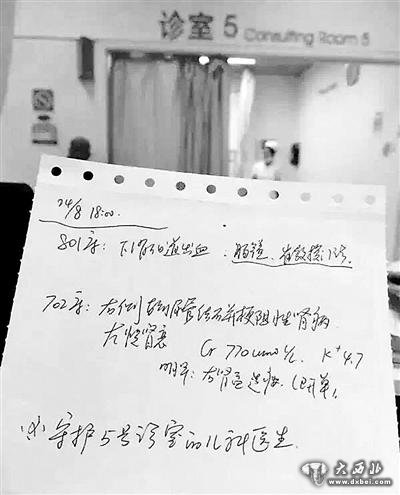 诊室 5 Consulting Room 5
24/8 18:00.
801房: 下消化道出血. 肠镜、
702房: 右侧输尿管结石并梗阻性肾病
左慢肾衰 Cr 770 umol/L K+4.7
明早: 右肾造
(4) 守护5号诊室的儿科医生.
大西北
www.dxbei.com